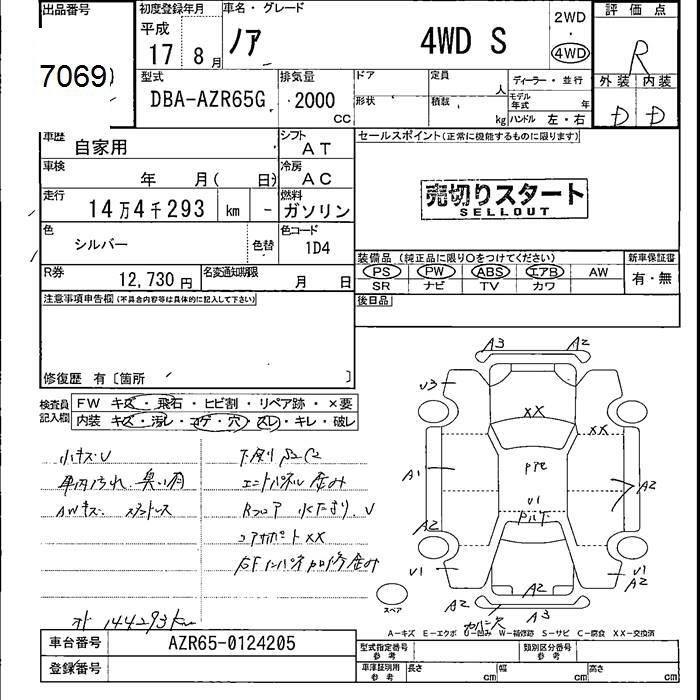 出品番号
7069
初度登録年月
平成
17 8月
車名・グレード
ノア 4WD S
2WD
・
4WD
評価点
R
外装 内装
D D
型式
DBA-AZR65G
排気量
2000
CC
ドア
形状
定員
人
積載
kg
ディーラー・並行
モデル年式 年
ハンドル 左・右
車歴
自家用
シフト
AT
車検
年 月( 日)
冷房
AC
走行
14万4千293 km -
燃料
ガソリン
色
シルバー
色替
色コード
1D4
R券
12,730円
名変通知期限
月 日
セールスポイント(正常に機能するものに限ります)
売切りスタート
SELLOUT
装備品(純正品に限り○をつけてください)
PS PW ABS エアB AW
SR ナビ TV カワ
新車保証書
有・無
後日品
注意事項申告欄(不具合内容等は具体的に記入して下さい)
修復歴 有〔箇所 〕
検査員記入欄
FW キズ・飛石・ヒビ割・リペア跡・×要
内装 キズ・汚レ・コゲ・穴・スレ・キレ・破レ
小キズU
車内汚れ、臭い有
AWキズ、
下廻りS2C2
エンドパネル歪み
Rフロア 水たまり、U
コアサポートXX
オ 144293km
A3 A2
U3
XX
XX
A1
A2
A2
U1
U1
U1
A2
A2
A2
A3
スペア
A-キズ E-エクボ U-凹み W-補修跡 S-サビ C-腐食 XX-交換済
車台番号 AZR65-0124205
登録番号
型式指定番号
参考
類別区分番号
参考
車庫証明用
参考
長さ cm 幅 cm 高さ cm